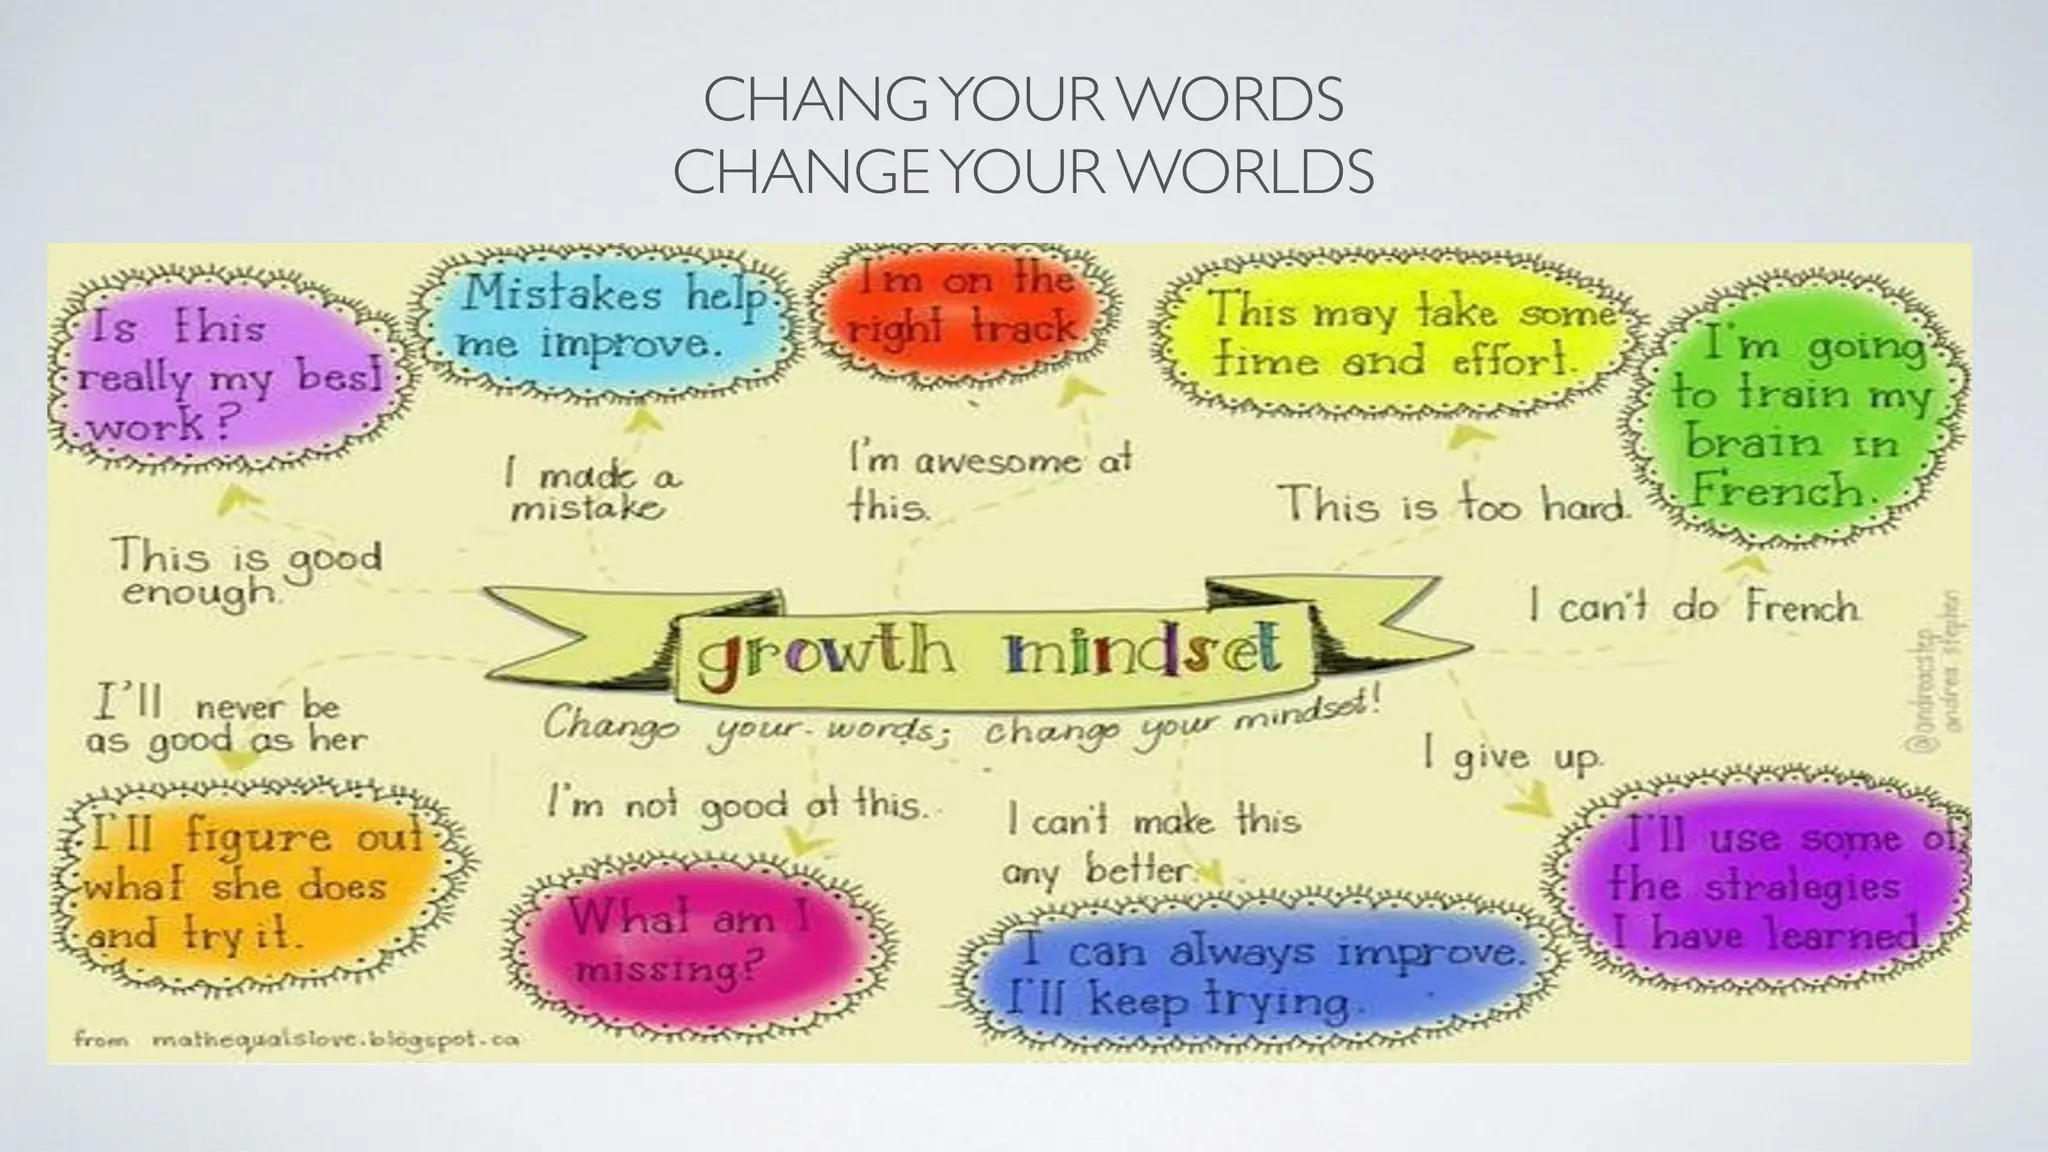 CHANG YOUR WORDS
CHANGE YOUR WORLDS
Is this
really my best
work?
Mistakes help
me improve.
I'm on the
right track
This may take some
time and effort.
I'm going
to train my
brain in
French.
I made a
mistake
I'm awesome at
this.
This is too hard.
This is good
enough.
I can't do French
growth mindset
Change your words; change your mindset!
I'll never be
as good as her
I give up.
I'm not good at this.
I can't make this
any better.
I'll figure out
what she does
and try it.
What am I
missing?
I can always improve.
I'll keep trying.
I'll use some of
the strategies
I have learned
@andreastep
andrea stephen
from mathequalslove.blogspot.ca